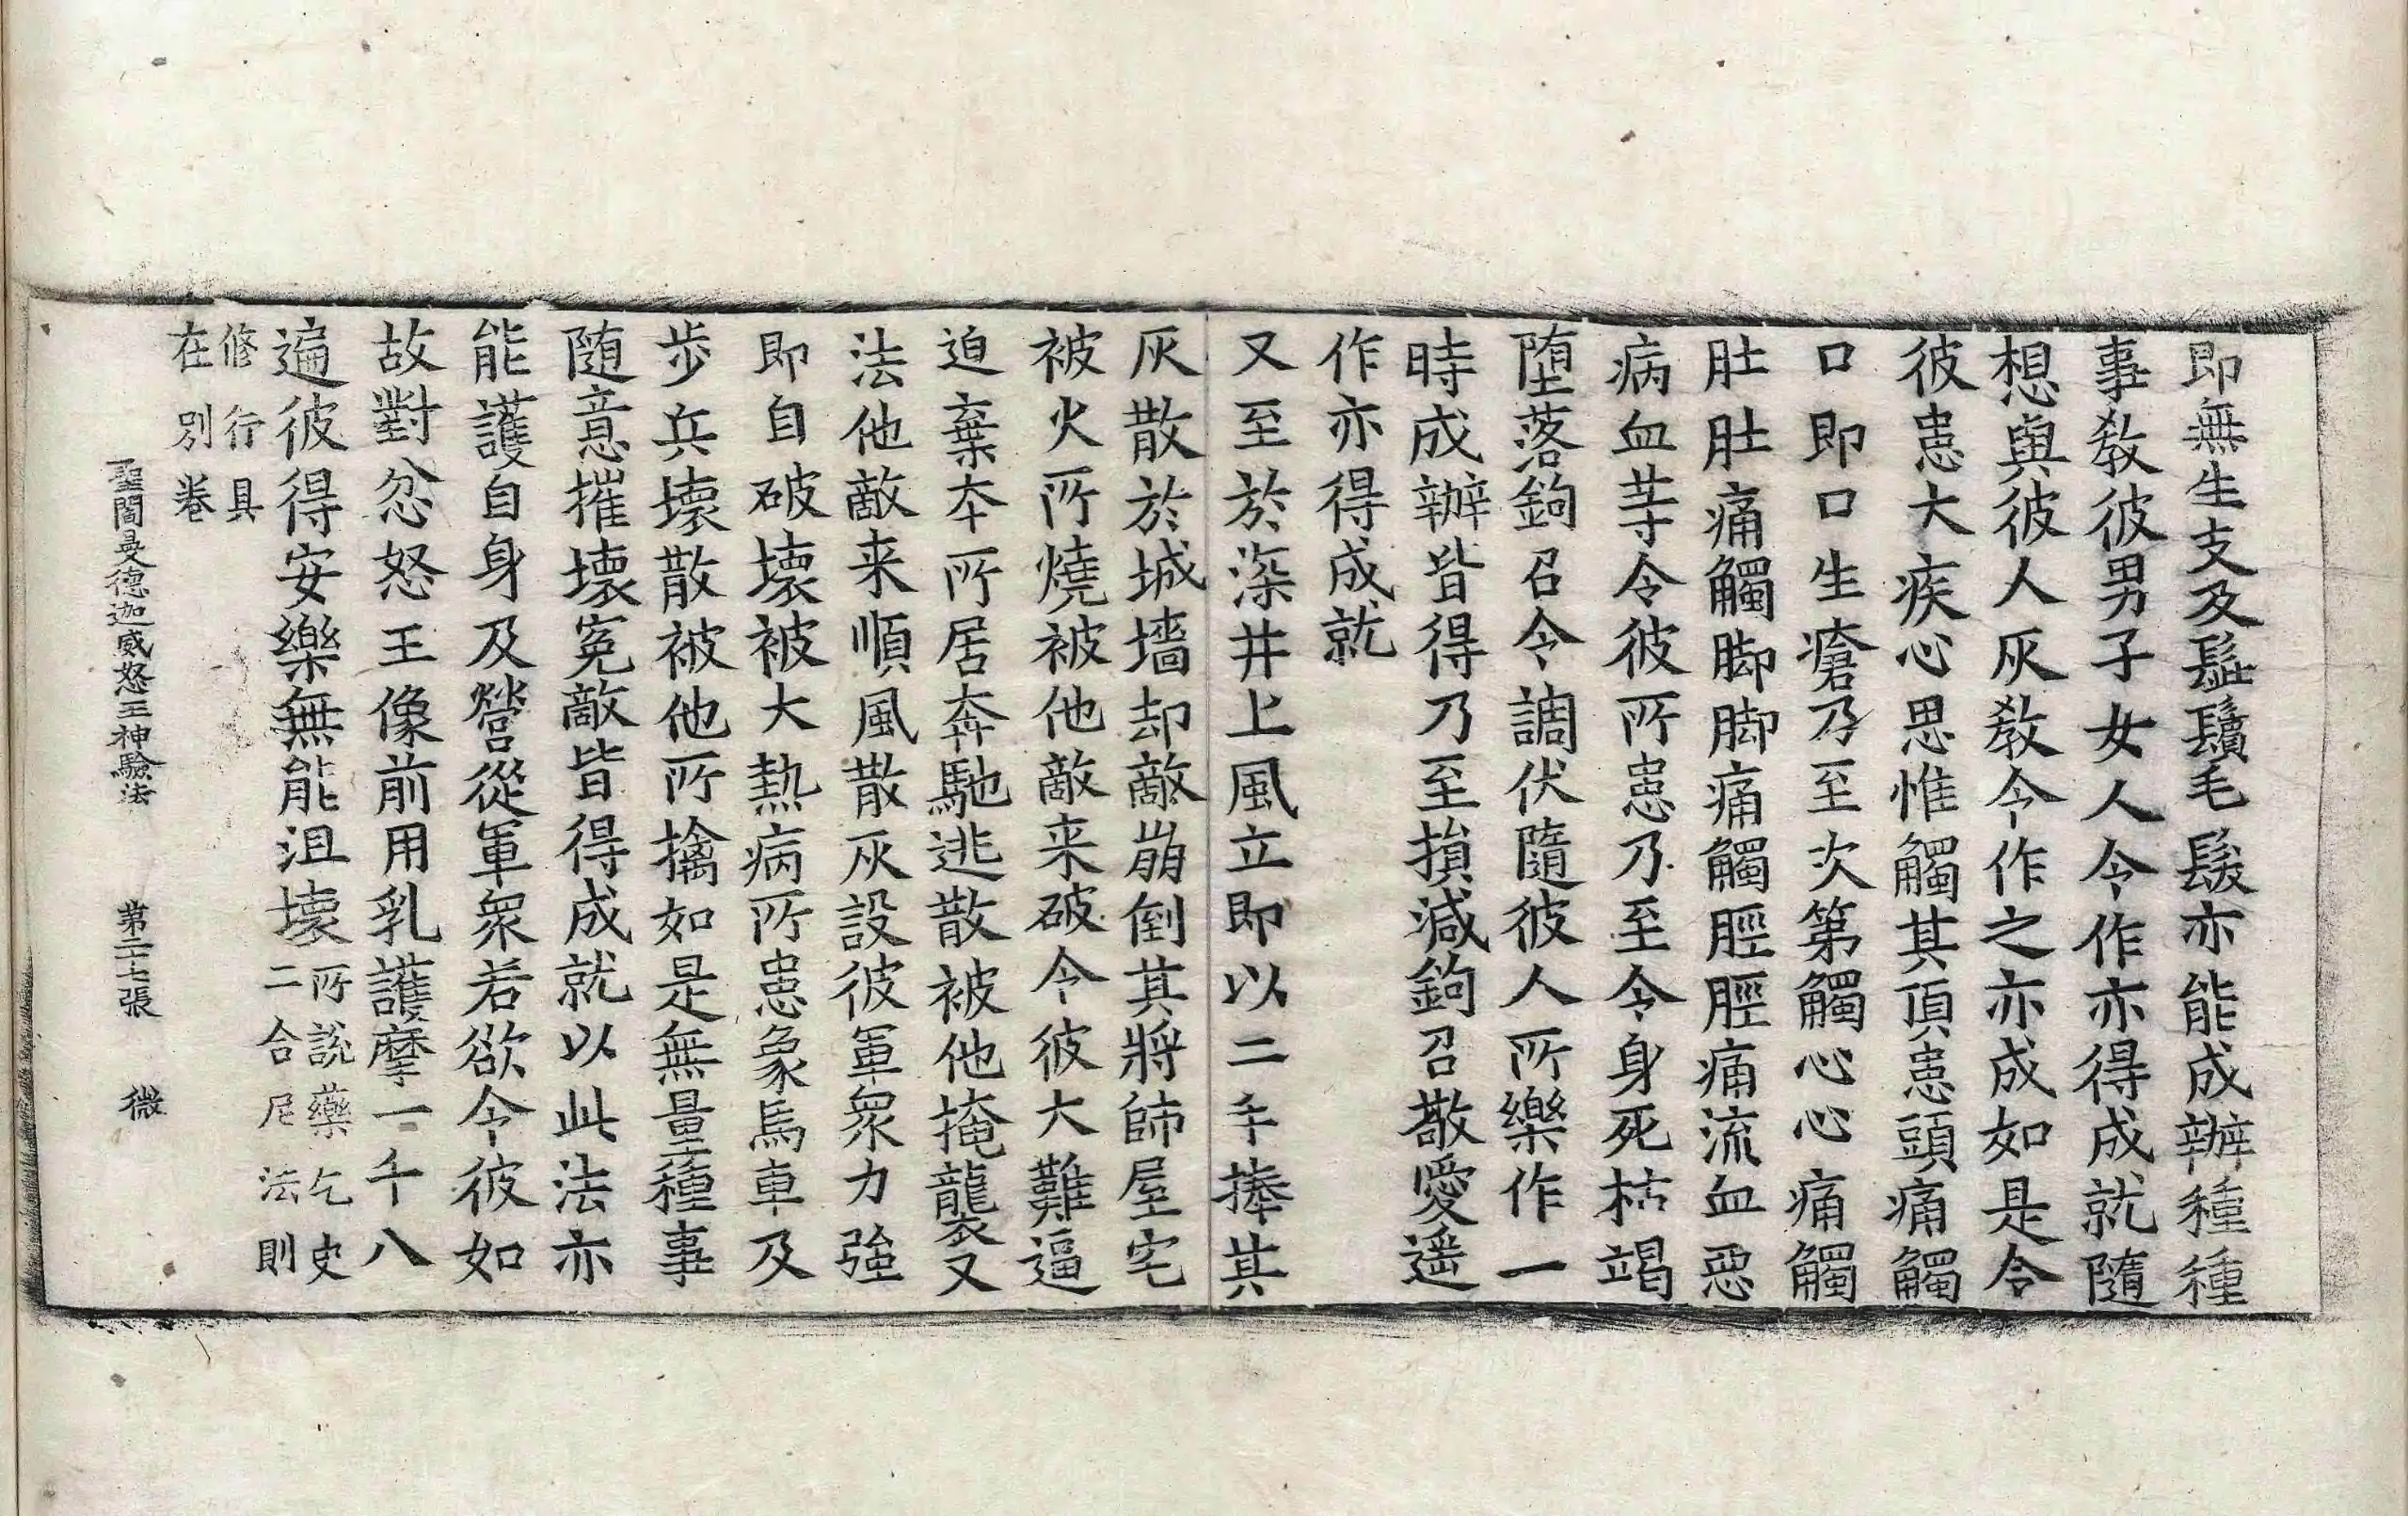 即無生支及髭鬚毛髮亦能成辦種種
事教彼男子女人令作亦得成就隨
想與彼人灰教令作之亦成如是令
彼患大疾心思惟觸其頂患頭痛觸
口即口生瘡乃至次第觸心心痛觸
肚肚痛觸脚脚痛觸脛脛痛流血惡
病血䒭令彼所患乃至令身死枯竭
堕落鉤召令調伏隨彼人所樂作一
時成辦皆得乃至損減鉤召敬愛遥
作亦得成就
又至於深井上風立即以二手捧其
灰散於城墻却敵崩倒其將師屋宅
被火所燒被他敵来破令彼大難逼
迫棄夲所居奔馳逃散被他掩襲又
法他敵来順風散灰設彼軍衆力強
即自破壞被大熱病所患象馬車及
步兵壞散被他所擒如是無量種事
随意摧壞寃敵皆得成就以此法亦
能護自身及營從軍衆若欲令彼如
故對忿怒王像前用乳護摩一千八
遍彼得安樂無能沮壞所説藥乞史
二合尼法則
修行具
在別巻
聖閻曼德迦威怒王神驗法 第二十七張 微